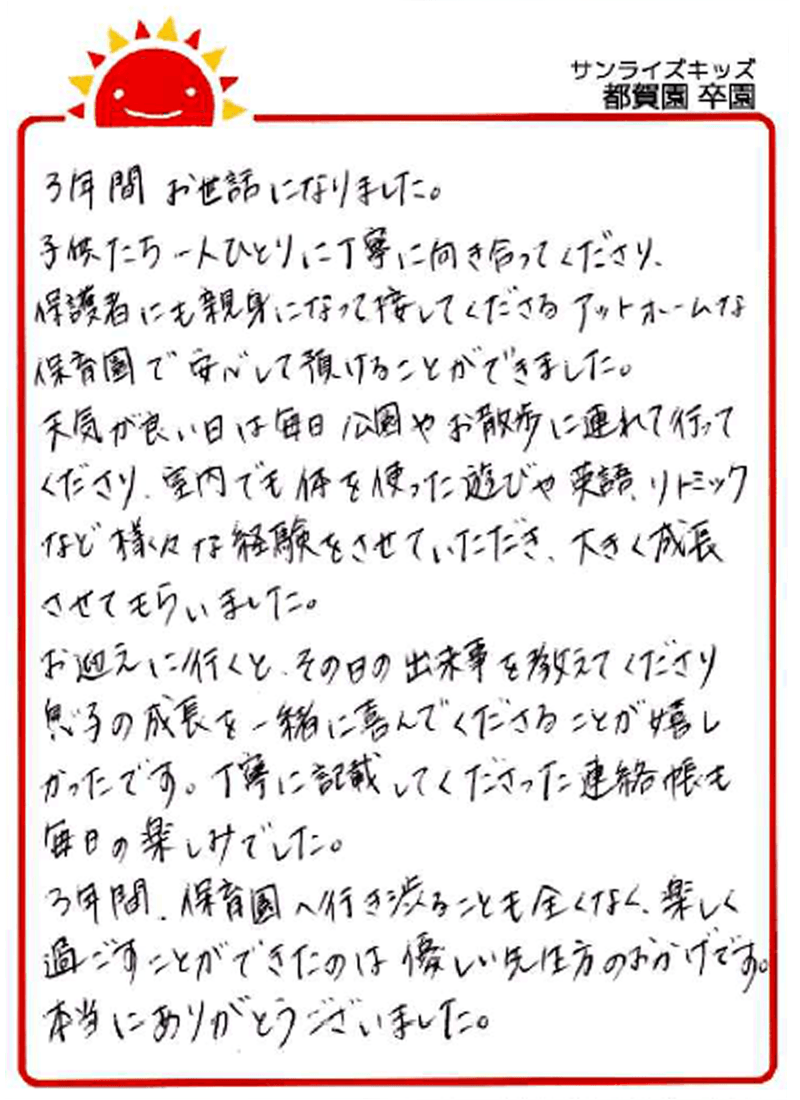 サンライズキッズ
都賀園 卒園
3年間 お世話になりました。
子供たち一人ひとりに丁寧に向き合ってくださり、
保護者にも親身になって接してくださるアットホームな
保育園で安心して預けることができました。
天気が良い日は毎日公園やお散歩に連れて行って
くださり、室内でも体を使った遊びや英語、リトミック
など様々な経験をさせていただき、大きく成長
させてもらいました。
お迎えに行くと、その日の出来事を教えてくださり
息子の成長を一緒に喜んでくださることが嬉し
かったです。丁寧に記載してくださった連絡帳も
毎日の楽しみでした。
3年間、保育園へ行き渋ることも全くなく、楽しく
過ごすことができたのは優しい先生方のおかげです。
本当にありがとうございました。